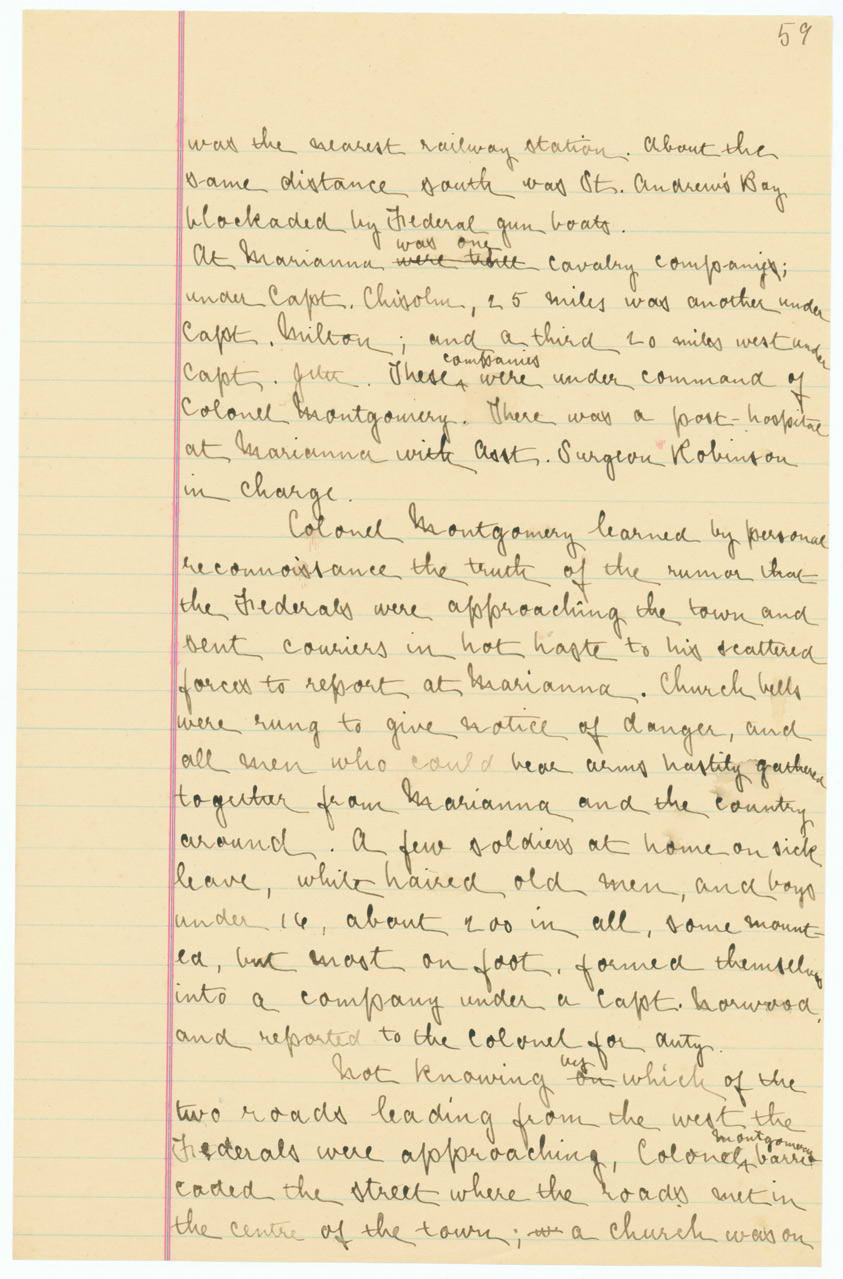 59
was the nearest railway station. About the
same distance south was St. Andrew's Bay
blockaded by Federal gun boats.
was one
At Marianna were cavalry company;
under Capt. Chisolm, 25 miles was another under
Capt. Milton; and a third 20 miles west under
companies
Capt. Jeter. These were under command of
Colonel Montgomery. There was a post-hospital
at Marianna with Asst. Surgeon Robinson
in charge.
Colonel Montgomery learned by personal
reconnoissance the truth of the rumor that
the Federals were approaching the town and
sent couriers in hot haste to his scattered
forces to report at Marianna. Church bells
were rung to give notice of danger, and
all men who could bear arms hastily gathered
together from Marianna and the country
around. A few soldiers at home on sick
leave, white haired old men, and boys
under 16, about 200 in all, some mount-
ed, but most on foot, formed themselves
into a company under a Capt. Norwood,
and reported to the Colonel for duty.
by
Not knowing on which of the
two roads leading from the west the
Montgomery
Federals were approaching, Colonel barri-
caded the street where the roads met in
the centre of the town; a church was on